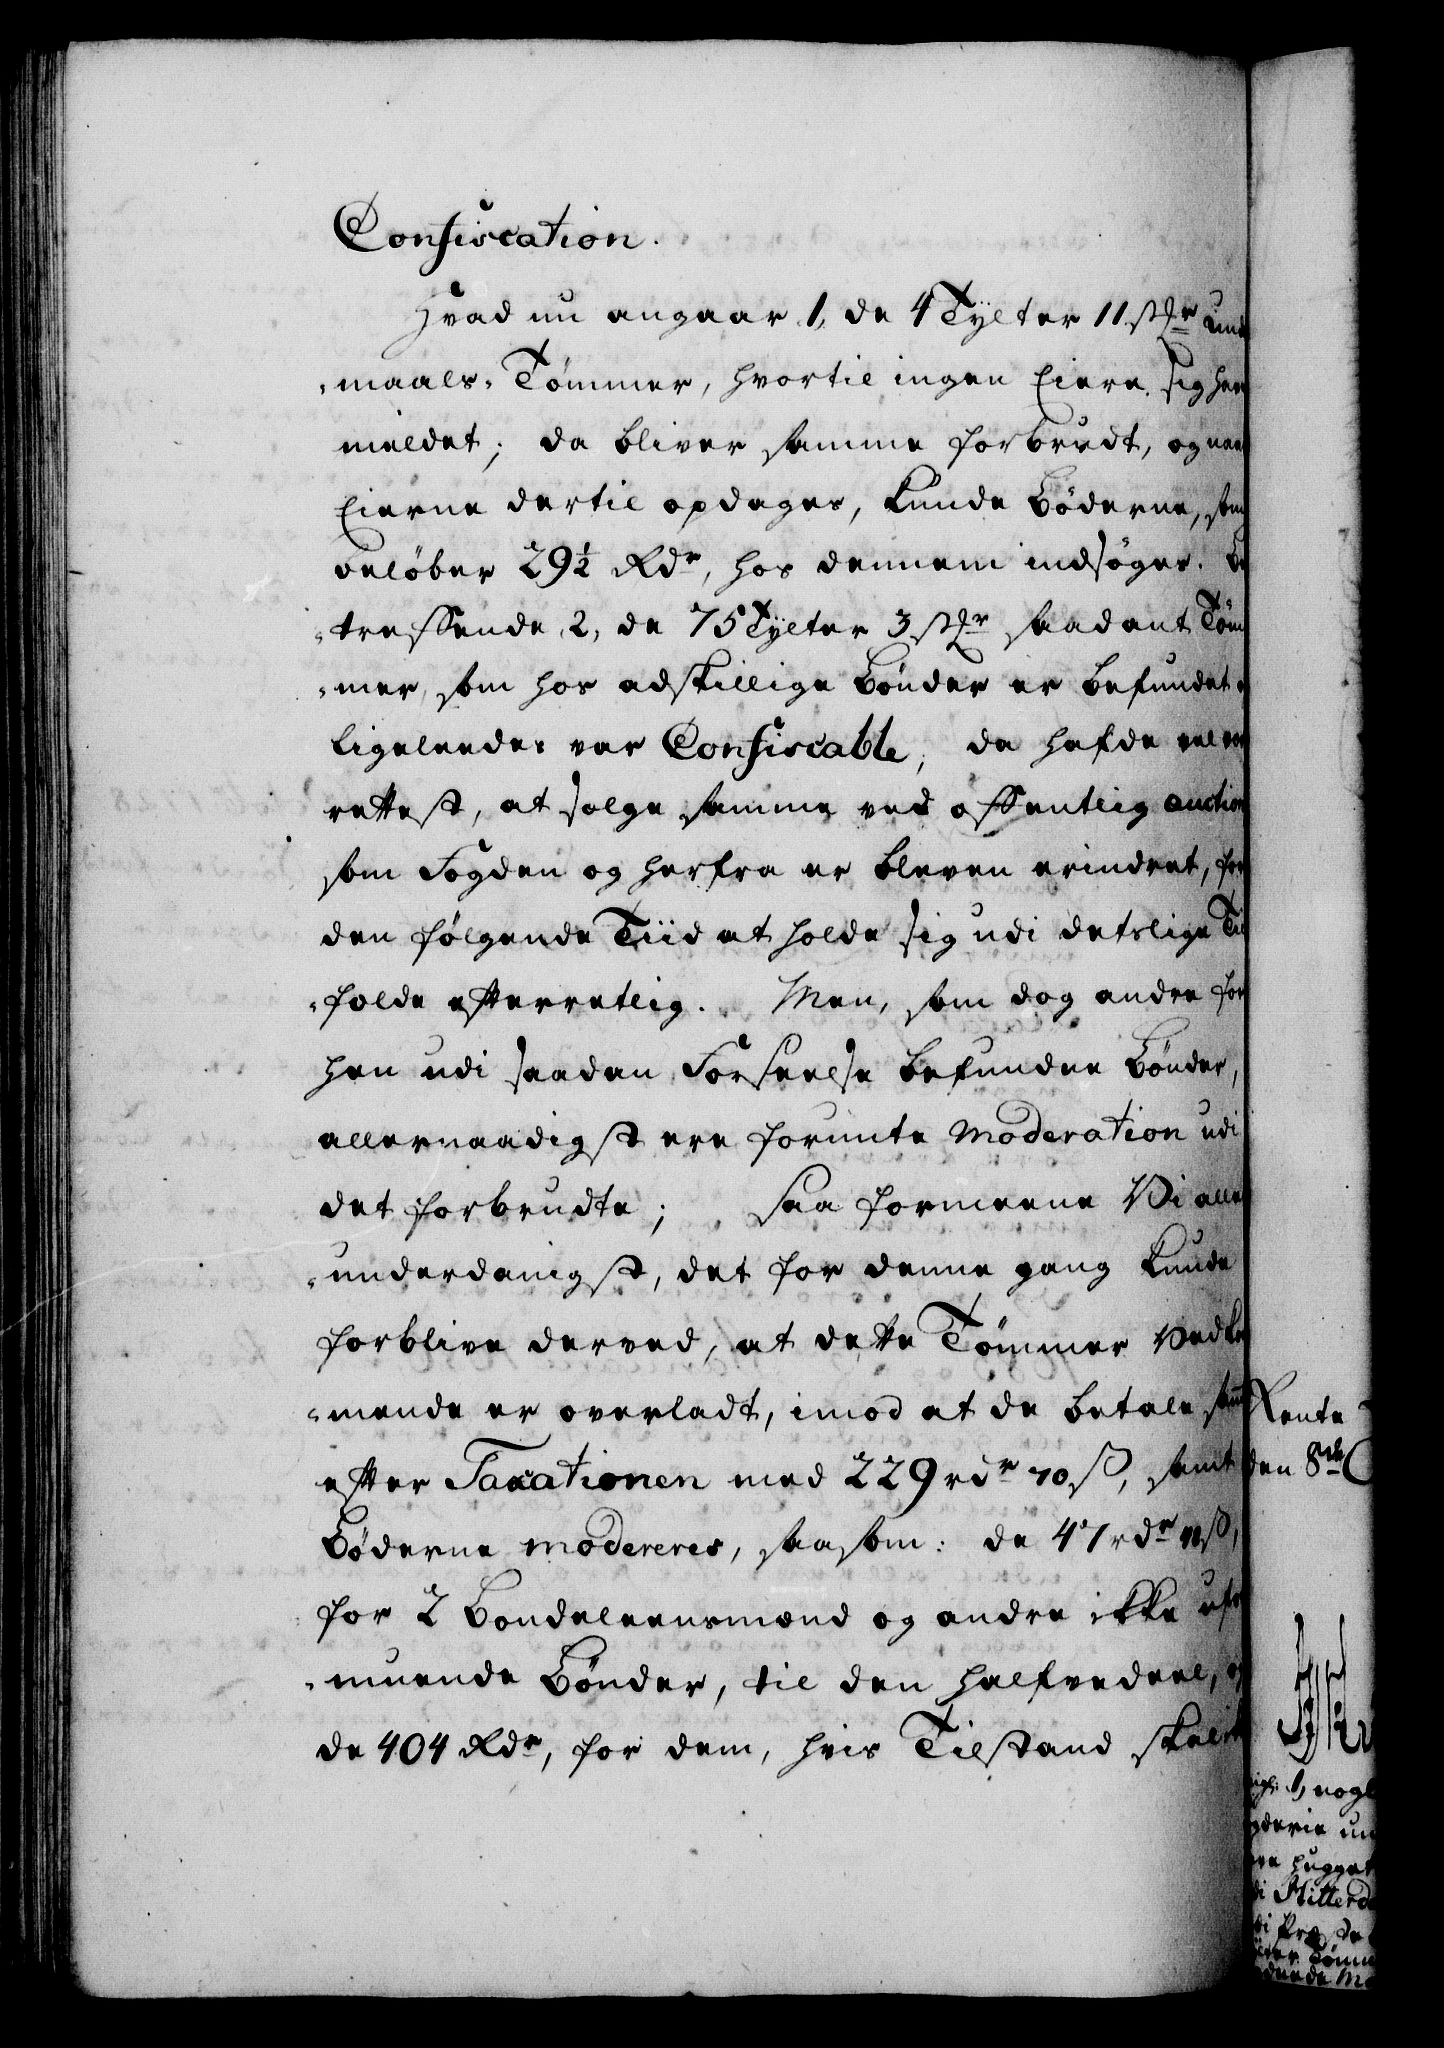 Confiscation.
Hvad nu angaar 1, de 4 Tylter 11 stkr und
-maals-Tømmer, hvortil ingen Eiere sig har
meldet; da bliver samme forbrudt, og naar
Eierne dertil opdages, kunde Bøderne, som
beløber 29½ Rdr, hos dennem indsøges. Be
-treffende, 2, de 75 Tylter 3 stkr saadant Tøm
-mer, som hos adskillige Bønder er befundet
ligeleedes var Confiscable, da hafde vel vær
rettest, at sælge samme ved offentlig auction
som Fogden og herfra er bleven erindret, for
den følgende Tiid at holde sig udi deslige Til
-fælde efterretlig. Men, som dog andre for
hen udi saadan Forseelse befundne Bønder,
allernaadigst ere forunte Moderation udi
det forbrudte; saa formeene Vi aller
-underdanigst, det for denne gang kunde
forblive derved, at dette Tømmer Vedkom
-mende er overladt, imod at de betale samme
efter Taxationen med 229 rdr 70 ß, samt
Bøderne modereres, saasom: de 47 rdr ß,
for 2 Bondeleensmænd og andre ikke ufor
-muende Bønder, til den halfvedeel, og
de 404 Rdr, for dem, hvis Tilstand skal
Rente
den 8de
1, nogle
gderie un
hugget
di Hitterd
Tømm